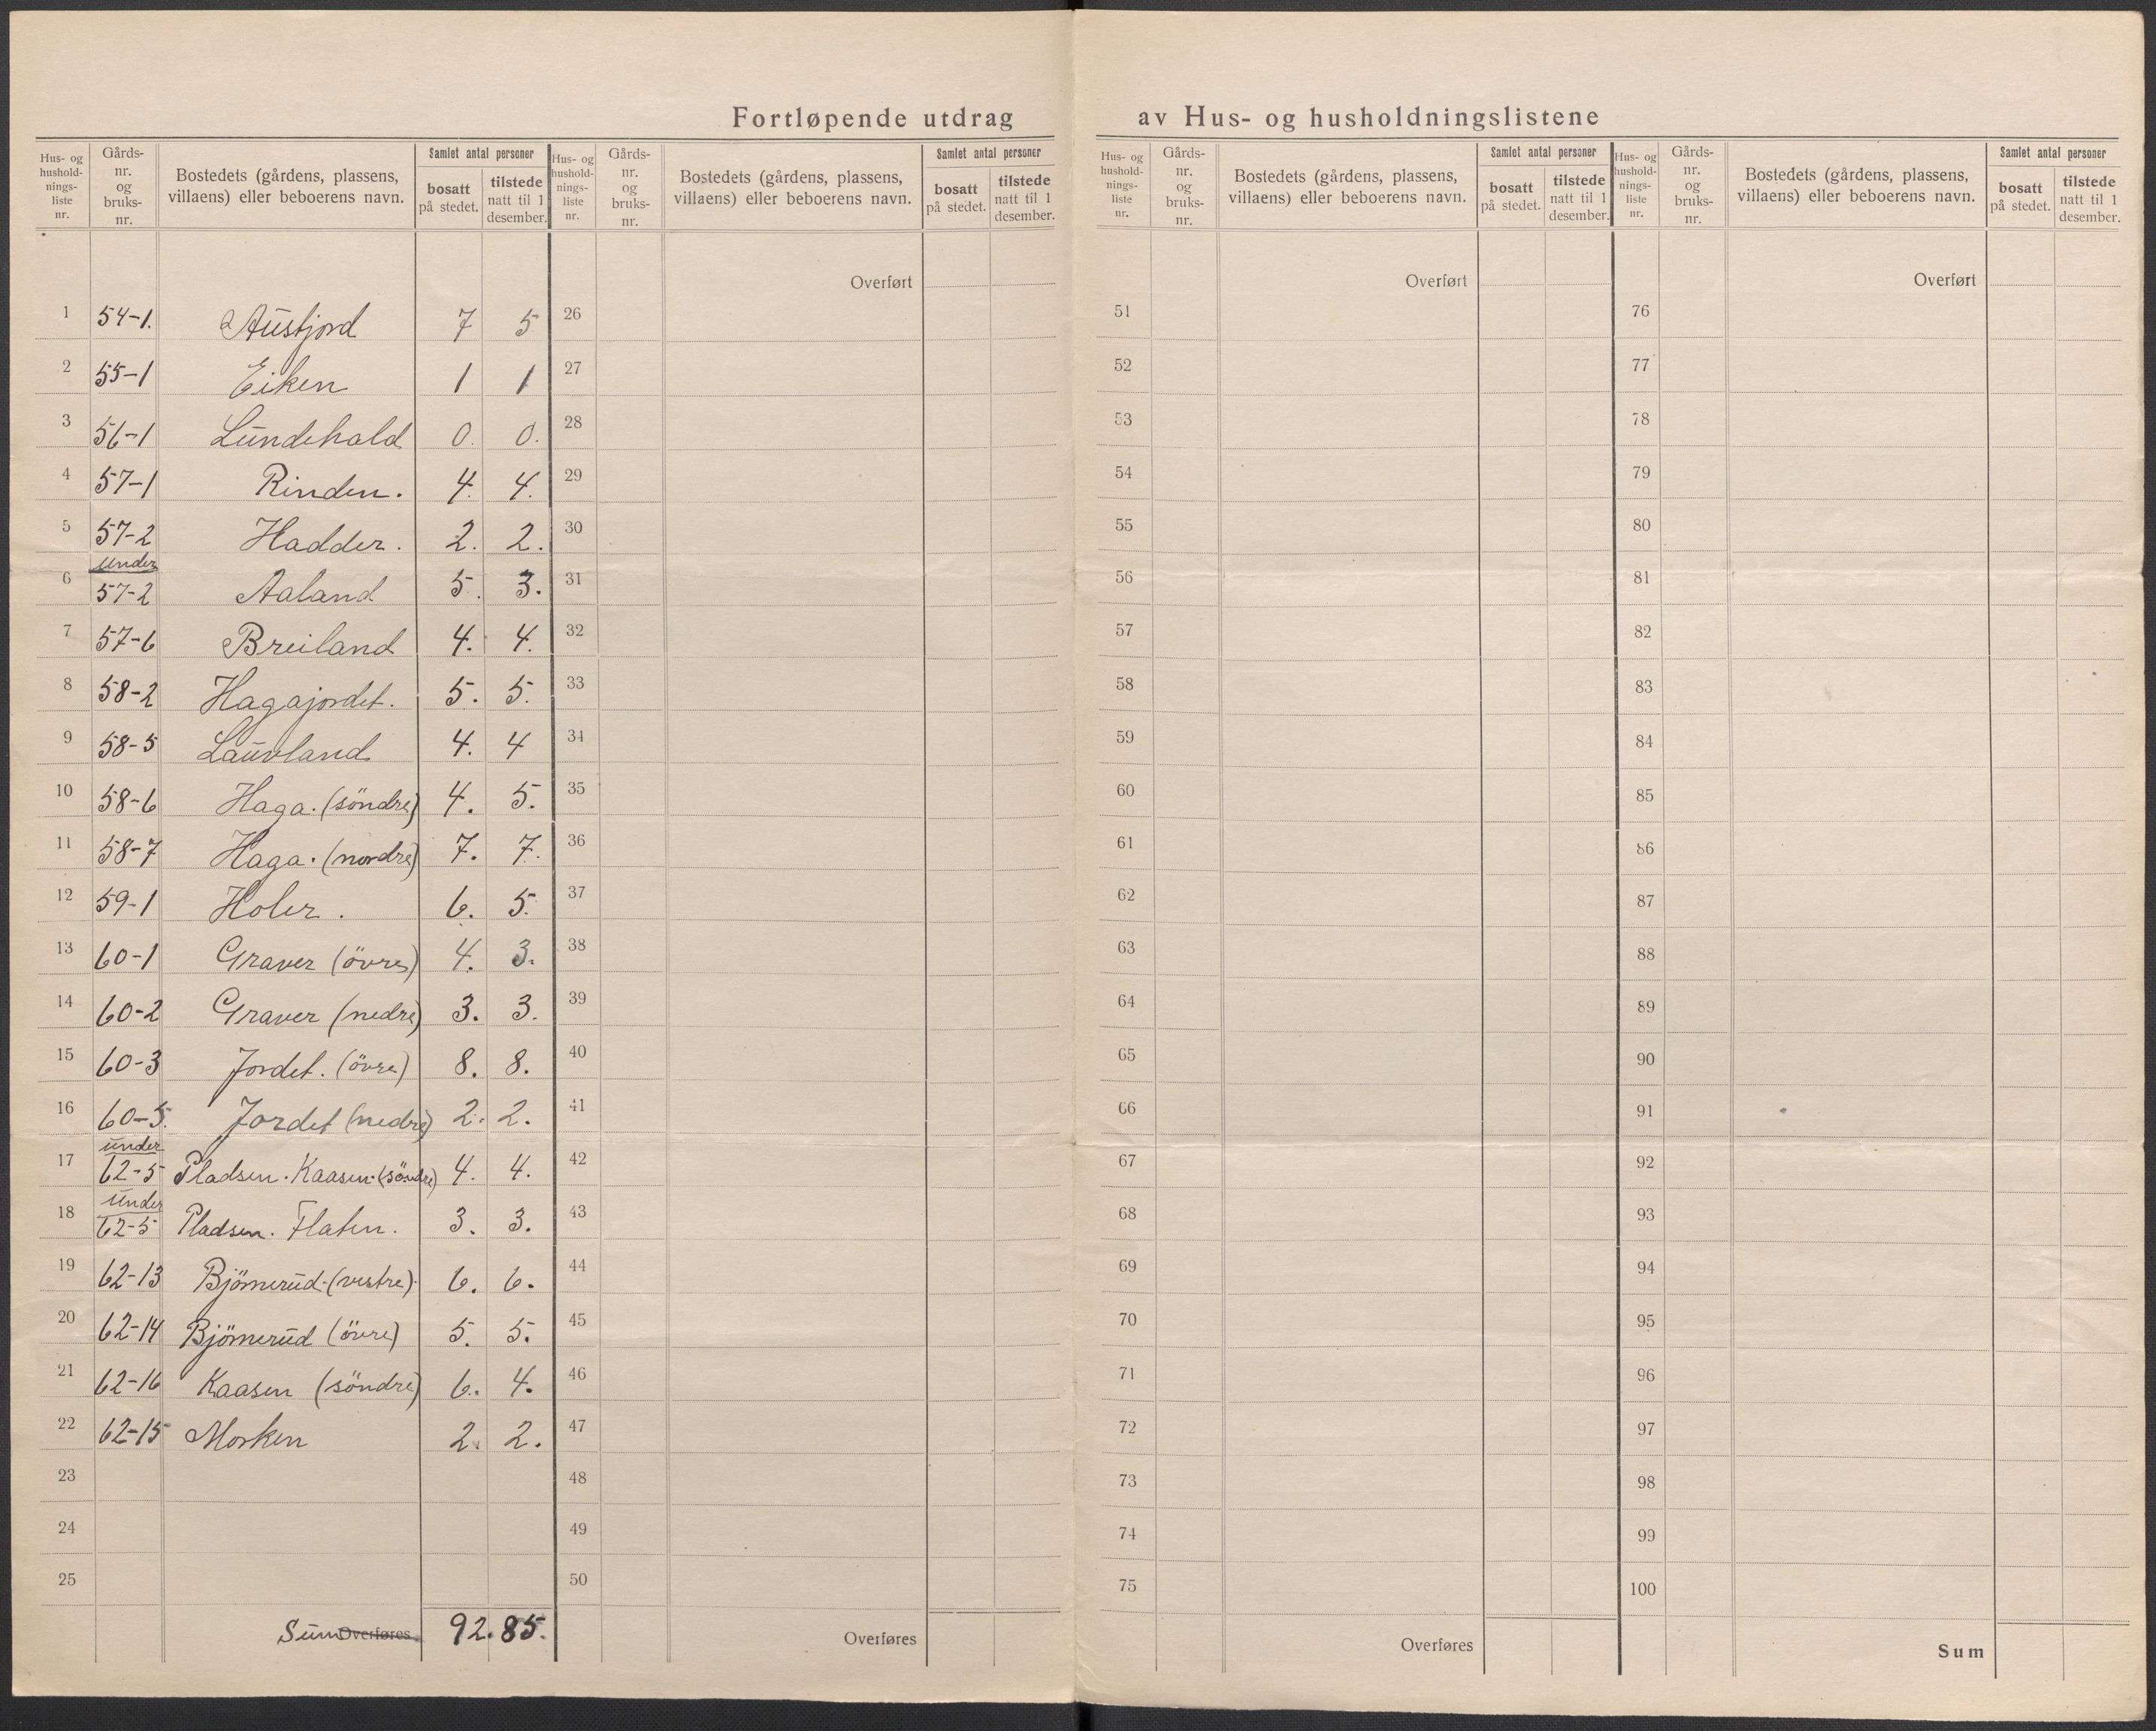 Fortløpende utdrag av Hus- og husholdningslistene
Hus- og hushold-nings-liste nr. Gårds-nr. og bruks-nr. Bostedets (gårdens, plassens, villaens) eller beboerens navn. Samlet antal personer bosatt på stedet. tilstede natt til 1 desember.
1 54-1. Austjord 7 5
2 55-1 Eiken 1 1
3 56-1 Lundehald 0. 0.
4 57-1 Rinden. 4. 4.
5 57-2 Hadder. 2. 2.
6 under 57-2 Aaland 5. 3.
7 57-6 Breiland 4. 4.
8 58-2 Hagajordet. 5. 5.
9 58-5 Lauvland 4. 4
10 58-6 Haga. (söndre) 4. 5.
11 58-7 Haga. (nordre) 7. 7.
12 59-1 Holer. 6. 5.
13 60-1 Graver (övre) 4. 3.
14 60-2 Graver (nedre) 3. 3.
15 60-3 Jordet. (övre) 8. 8.
16 60-5. Jordet (nedre) 2. 2.
17 under 62-5 Pladsen. Kaasen. (söndre) 4. 4.
18 under 62-5 Pladsen. Flaten. 3. 3.
19 62-13 Björnerud. (vestre). 6. 6.
20 62-14 Björnerud (övre) 5. 5.
21 62-16 Kaasen (söndre) 6. 4.
22 62-15 Morken 2. 2.
23
24
25
Sum Overføres 92. 85.
Hus- og hushold-nings-liste nr. Gårds-nr. og bruks-nr. Bostedets (gårdens, plassens, villaens) eller beboerens navn. Samlet antal personer bosatt på stedet. tilstede natt til 1 desember.
Overført
26
27
28
29
30
31
32
33
34
35
36
37
38
39
40
41
42
43
44
45
46
47
48
49
50
Overføres
Hus- og hushold-nings-liste nr. Gårds-nr. og bruks-nr. Bostedets (gårdens, plassens, villaens) eller beboerens navn. Samlet antal personer bosatt på stedet. tilstede natt til 1 desember.
Overført
51
52
53
54
55
56
57
58
59
60
61
62
63
64
65
66
67
68
69
70
71
72
73
74
75
Overføres
Hus- og hushold-nings-liste nr. Gårds-nr. og bruks-nr. Bostedets (gårdens, plassens, villaens) eller beboerens navn. Samlet antal personer bosatt på stedet. tilstede natt til 1 desember.
Overført
76
77
78
79
80
81
82
83
84
85
86
87
88
89
90
91
92
93
94
95
96
97
98
99
100
Sum